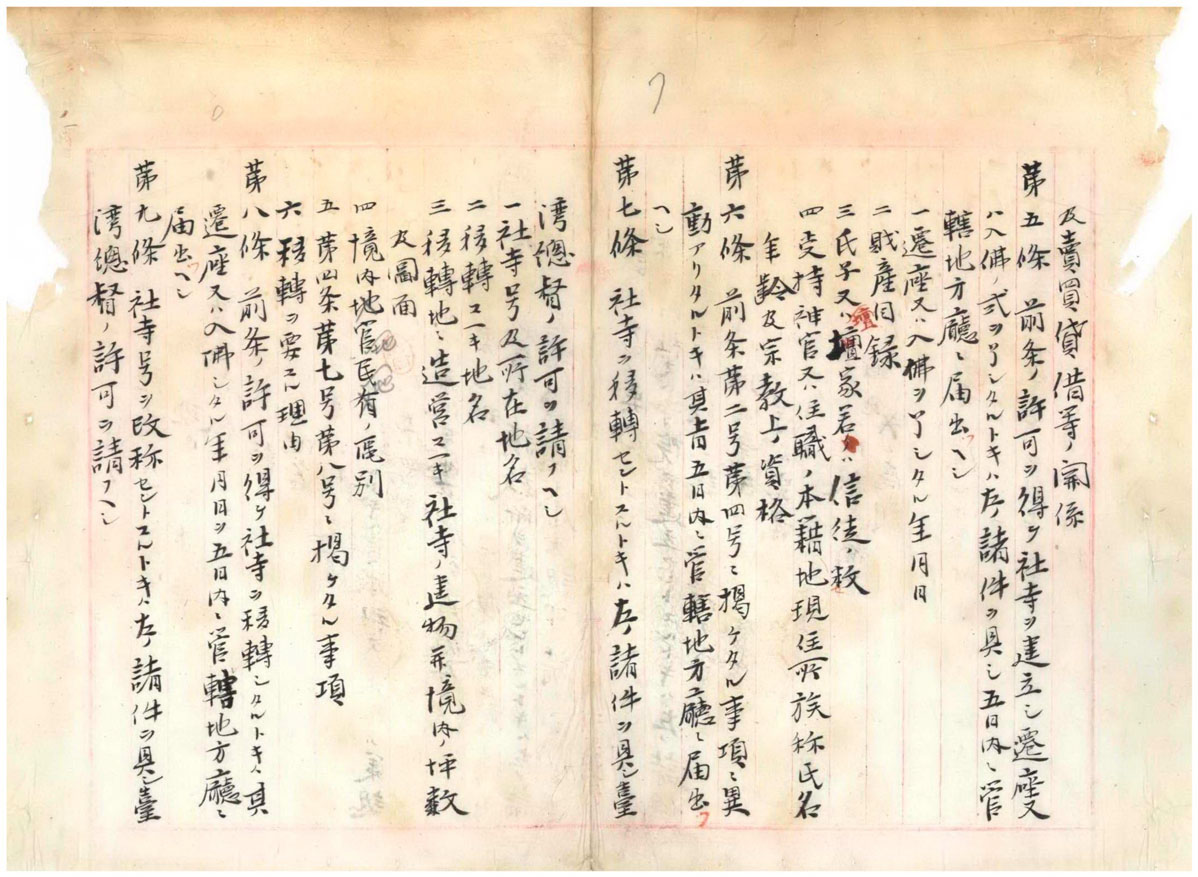 及賣買貸借等ノ関係
第五條　前条ノ許可ヲ得ケ社寺ヲ建立シ遷座又
ハ入佛ノ式ヲ了シタルトキハ左ノ諸件ヲ具シ五日内ニ管
轄地方廳ニ届出ヘシ
一遷座又ハ入佛ヲ了シタル年月日
二財産目録
三氏子又ハ檀家若クハ信徒ノ数
四受持神官又ハ住職ノ本籍地現住所族称氏名
年齢及宗教上ノ資格
第六條　前条第二号第四号ニ掲ケタル事項ニ異
動アリタルトキハ其者五日内ニ管轄地方廳ニ届出
ヘシ
第七條　社寺ヲ移轉セントスルトキハ左ノ諸件ヲ具シ臺
湾總督ノ許可ヲ請フヘシ
一社寺号及所在地名
二移轉スヘキ地名
三移轉地ニ造営スヘキ社寺ノ建物并境内ノ坪数
及圖面
四境内地官民有ノ區別
五第四条第七号第八号ニ掲ケタル事項
六移轉ヲ要スル理由
第八條　前条ノ許可ヲ得ケ社寺ヲ移轉シタルトキハ其
遷座又ハ入佛シタル年月日ヲ五日内ニ管轄地方廳ニ
届出ヘシ
第九條　社寺号ヲ改称セントスルトキハ左ノ諸件ヲ具シ臺
湾總督ノ許可ヲ請フヘシ